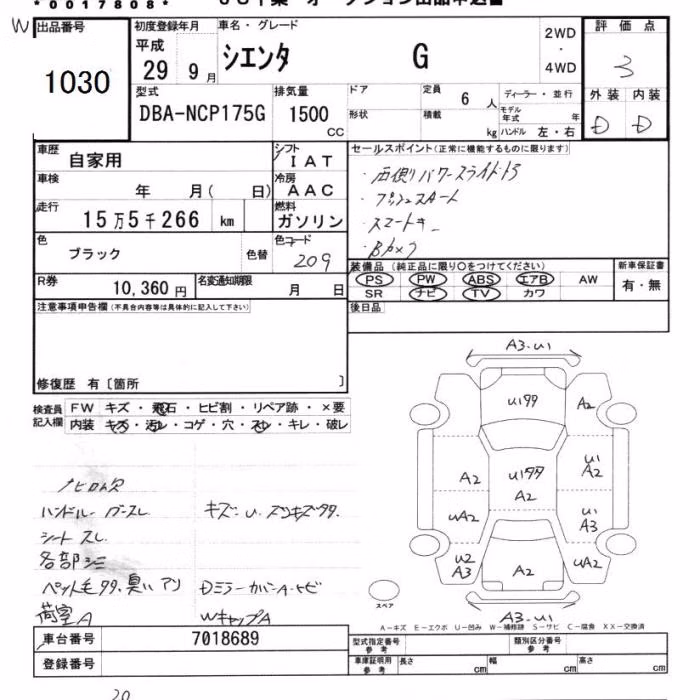 *0017808*
W 出品番号 1030
初度登録年月 平成 29 9月
車名・グレード シエンタ G
2WD ・ 4WD
評価点 3
外装 内装
D D
型式 DBA-NCP175G
排気量 1500 cc
ドア 形状
定員 6 人
積載 kg
ディーラー・並行
モデル年式 年
ハンドル 左・右
車歴 自家用
シフト IAT
車検 年 月( 日)
冷房 AAC
走行 15万5千266 km
燃料 ガソリン
色 ブラック 色替
色コード 209
R券 10,360円
名変通知期限 月 日
セールスポイント(正常に機能するものに限ります)
・両側パワースライドドア
・プッシュスタート
・スマートキー
・Bカメラ
装備品(純正品に限り○をつけてください)
PS PW ABS エアB AW
SR ナビ TV カワ
新車保証書 有・無
後日品
注意事項申告欄(不具合内容等は具体的に記入して下さい)
修復歴 有〔箇所 〕
検査員記入欄
FW キズ・飛石・ヒビ割・リペア跡・×要
内装 キズ・汚れ・コゲ・穴・スレ・キレ・破レ
ハンドル
シートスレ
各部シミ
ペット毛 臭い アリ
荷室A
キズ・U
Dミラーカバー A・ヒビ
WキャップA
A3・U1
U199
A2
A2
U199
A2
U1
A2
UA2
U1
A3
U2
A3
A2
UA2
A3・U1
スペア
A-キズ E-エクボ U-凹み W-補修跡 S-サビ C-腐食 XX-交換済
車台番号 7018689
登録番号
型式指定番号 参考
類別区分番号 参考
車庫証明用 参考 長さ cm 幅 cm 高さ cm
20